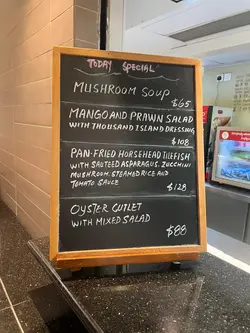 TODAY SPECIAL
MUSHROOM SOUP
$65
MANGO AND PRAWN SALAD
WITH THOUSAND ISLAND DRESSING
$108
PAN-FRIED HORSEHEAD TILEFISH
WITH SAUTEED ASPARAGUS, ZUCCHINI
MUSHROOM, STEAMED RICE AND
TOMATO SAUCE
$128
OYSTER CUTLET
WITH MIXED SALAD
$88